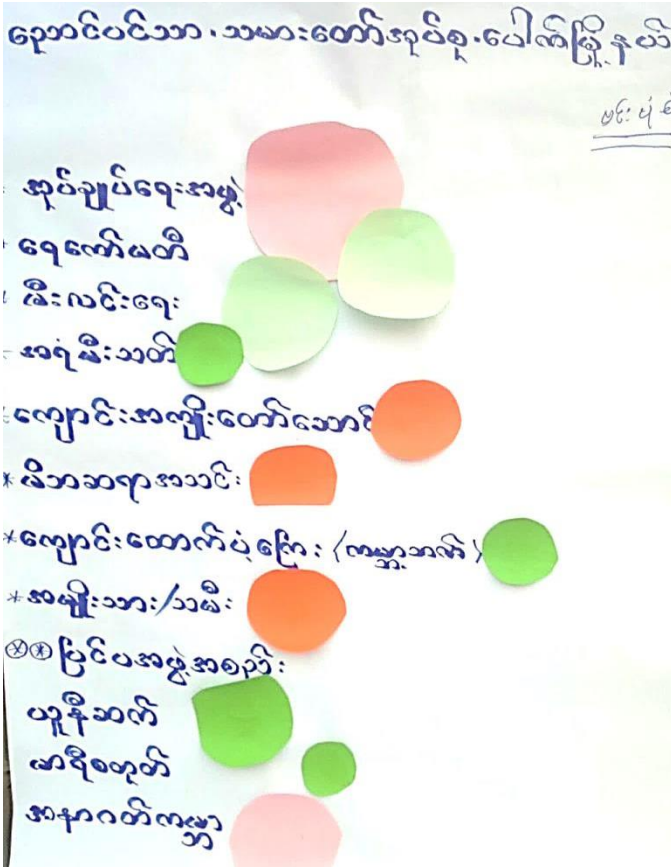 ညောင်ပင်သာ . သမားတော်အုပ်စု . ပေါက်မြို့နယ်
အုပ်ချုပ်ရေးအဖွဲ့
ရေကော်မတီ
မီးလင်းရေး
အရံမီးသတ်
ကျောင်းအကျိုးတော်ဆောင်
* မိဘဆရာအသင်း
* ကျောင်းထောက်ပံ့ကြေး (ကမ္ဘာ့ဘဏ်)
* အမျိုးသား/သမီး
ပြင်ပအဖွဲ့အစည်း
ယူနီဆက်
မာရီစတုတ်
အနာဂတ်ကမ္ဘာ